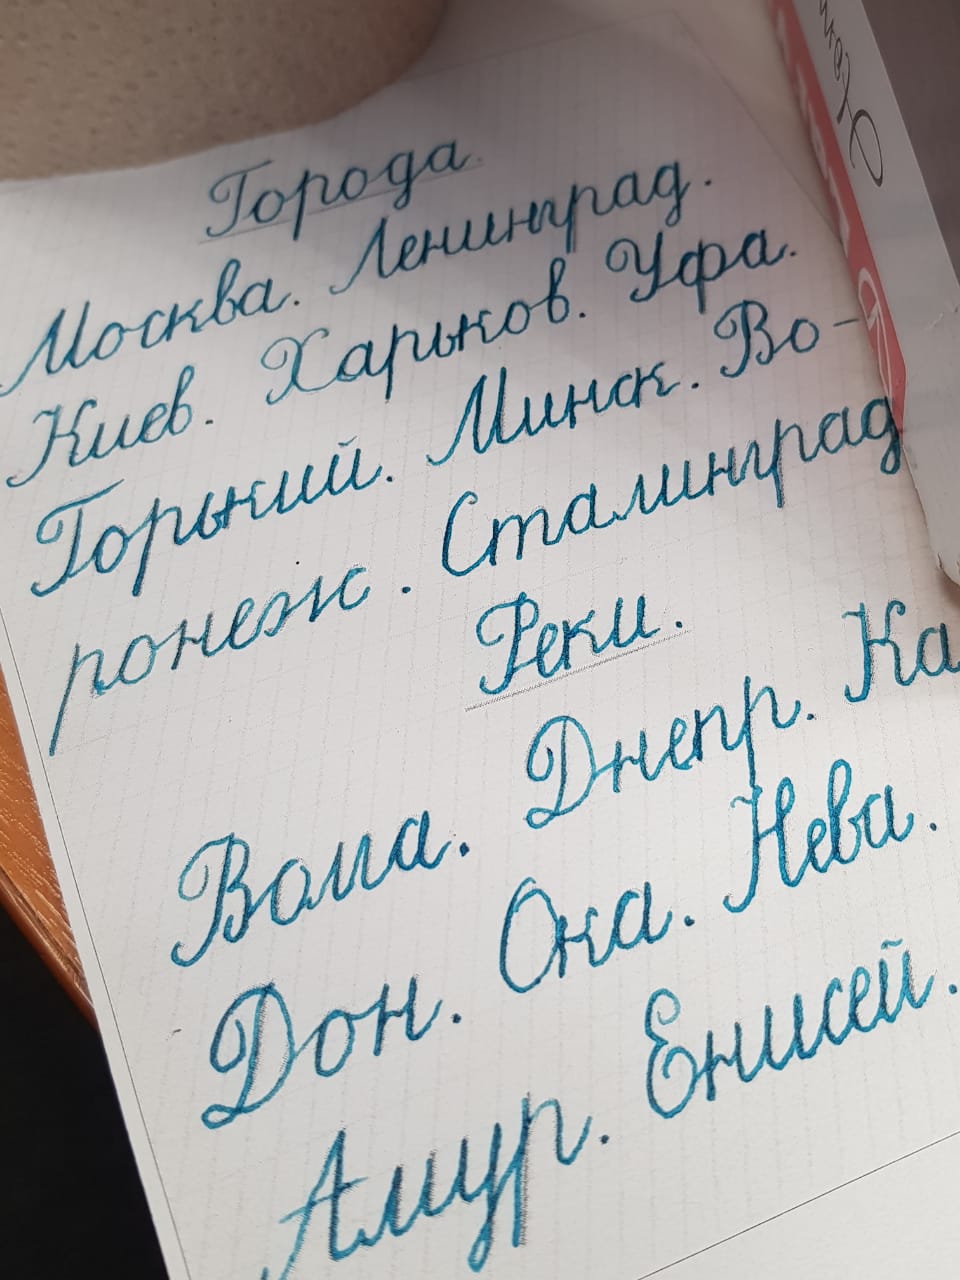 Города.
Москва. Ленинград.
Киев. Харьков. Уфа.
Горький. Минск. Во-
ронеж. Сталинград
Реки.
Волга. Днепр. Ка
Дон. Ока. Нева.
Амур. Енисей.